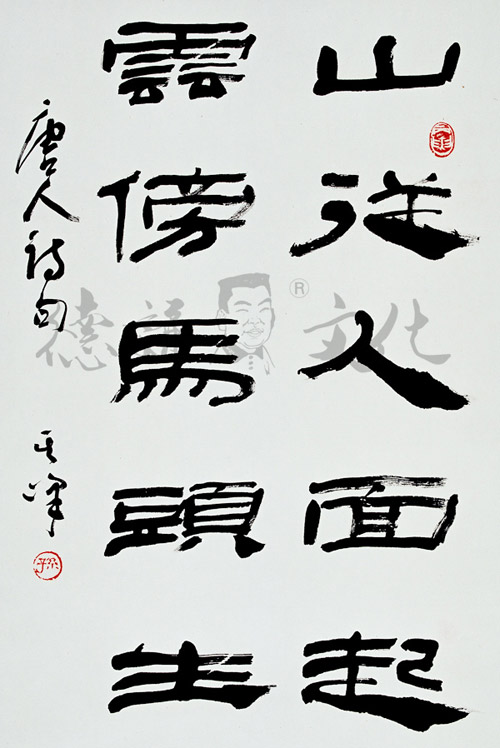 山從人面起
雲傍馬頭生
唐人詩句
其峰
孫
文化
®